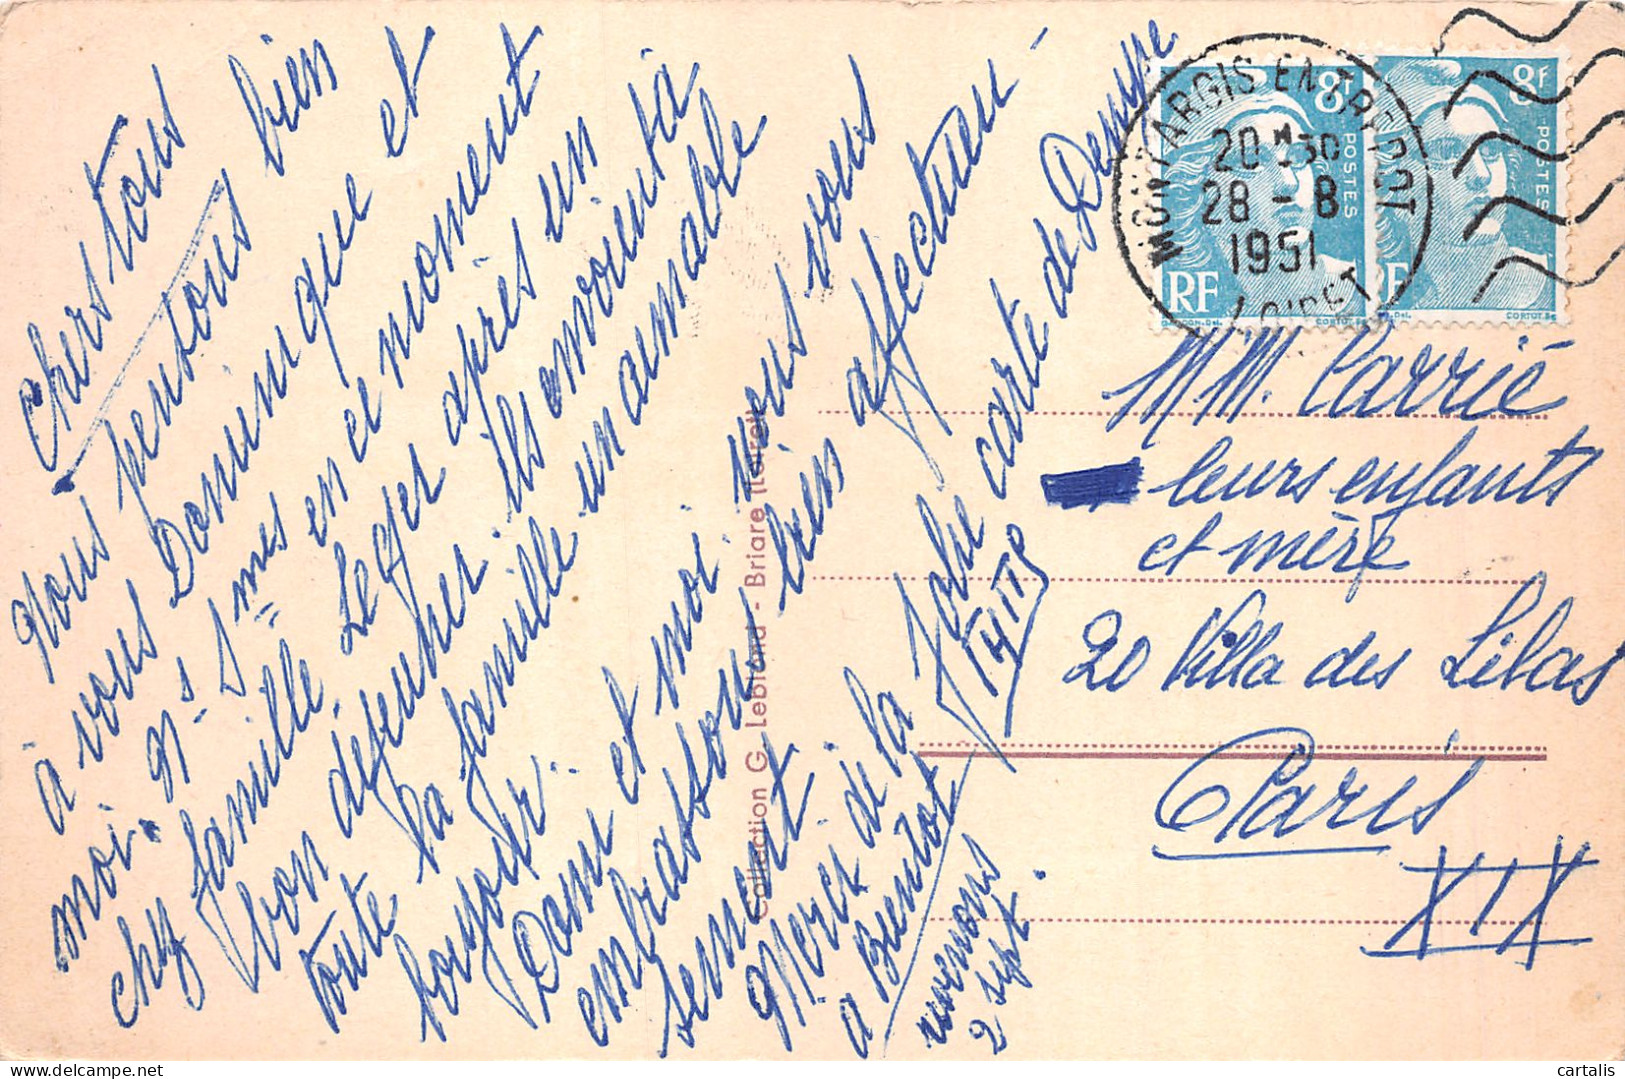 Chers tous
Nous pensons bien
à vous Dominique et
moi. Ns Smes en ce moment
chez famille Leger après un
bon déjeuner. ils envoient à
toute la famille un aimable
bonjour.
Dome et moi. nous vous
embrassons bien affectueu-
sement.
Merci de la Jolie carte de Denise
à Bientot
revenons
2 sept.
Collection G. Leblond - Briare (Loiret)
MONTARGIS ENTREPOT
20 H 30
28 - 8
1951
LOIRET
8F
POSTES
RF
GANDON.Del.
CORTOT.Sc
8F
POSTES
CORTOT.Sc
MM. Carrié
leurs enfants
et mère
20 Villa des Lilas
Paris
XIX
cartalis